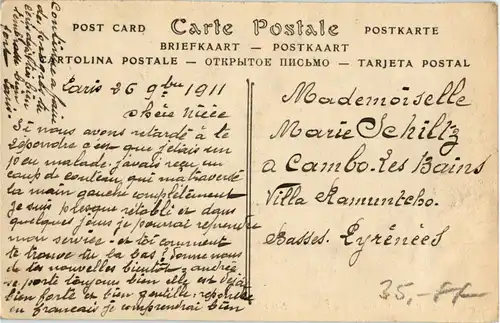 POST CARD Carte Postale POSTKARTE
BRIEFKAART — POSTKAART
CARTOLINA POSTALE — ОТКРЫТОЕ ПИСЬМО — TARJETA POSTAL
Paris 26 9bre 1911
Chère Nièce
Si nous avons retardé à te
répondre c'est que j'étais un
peu malade. j'avais reçu un
coup de couteau, qui m'a traversé
la main gauche complétement
je suis presque rétabli et dans
quelques jours je pourrai reprendre
mon service. et toi comment
te trouve tu la bas? donne nous
de tes nouvelles bientôt, andrée
se porte toujours bien elle est déjà
bien forte et bien gentille. reponds
en francais je comprendrai bien
Continue a faire
Mademoiselle
Marie Schiltz
a Cambo. Les Bains
Villa Ramuntcho.
Basses. Pyrénées
35,-